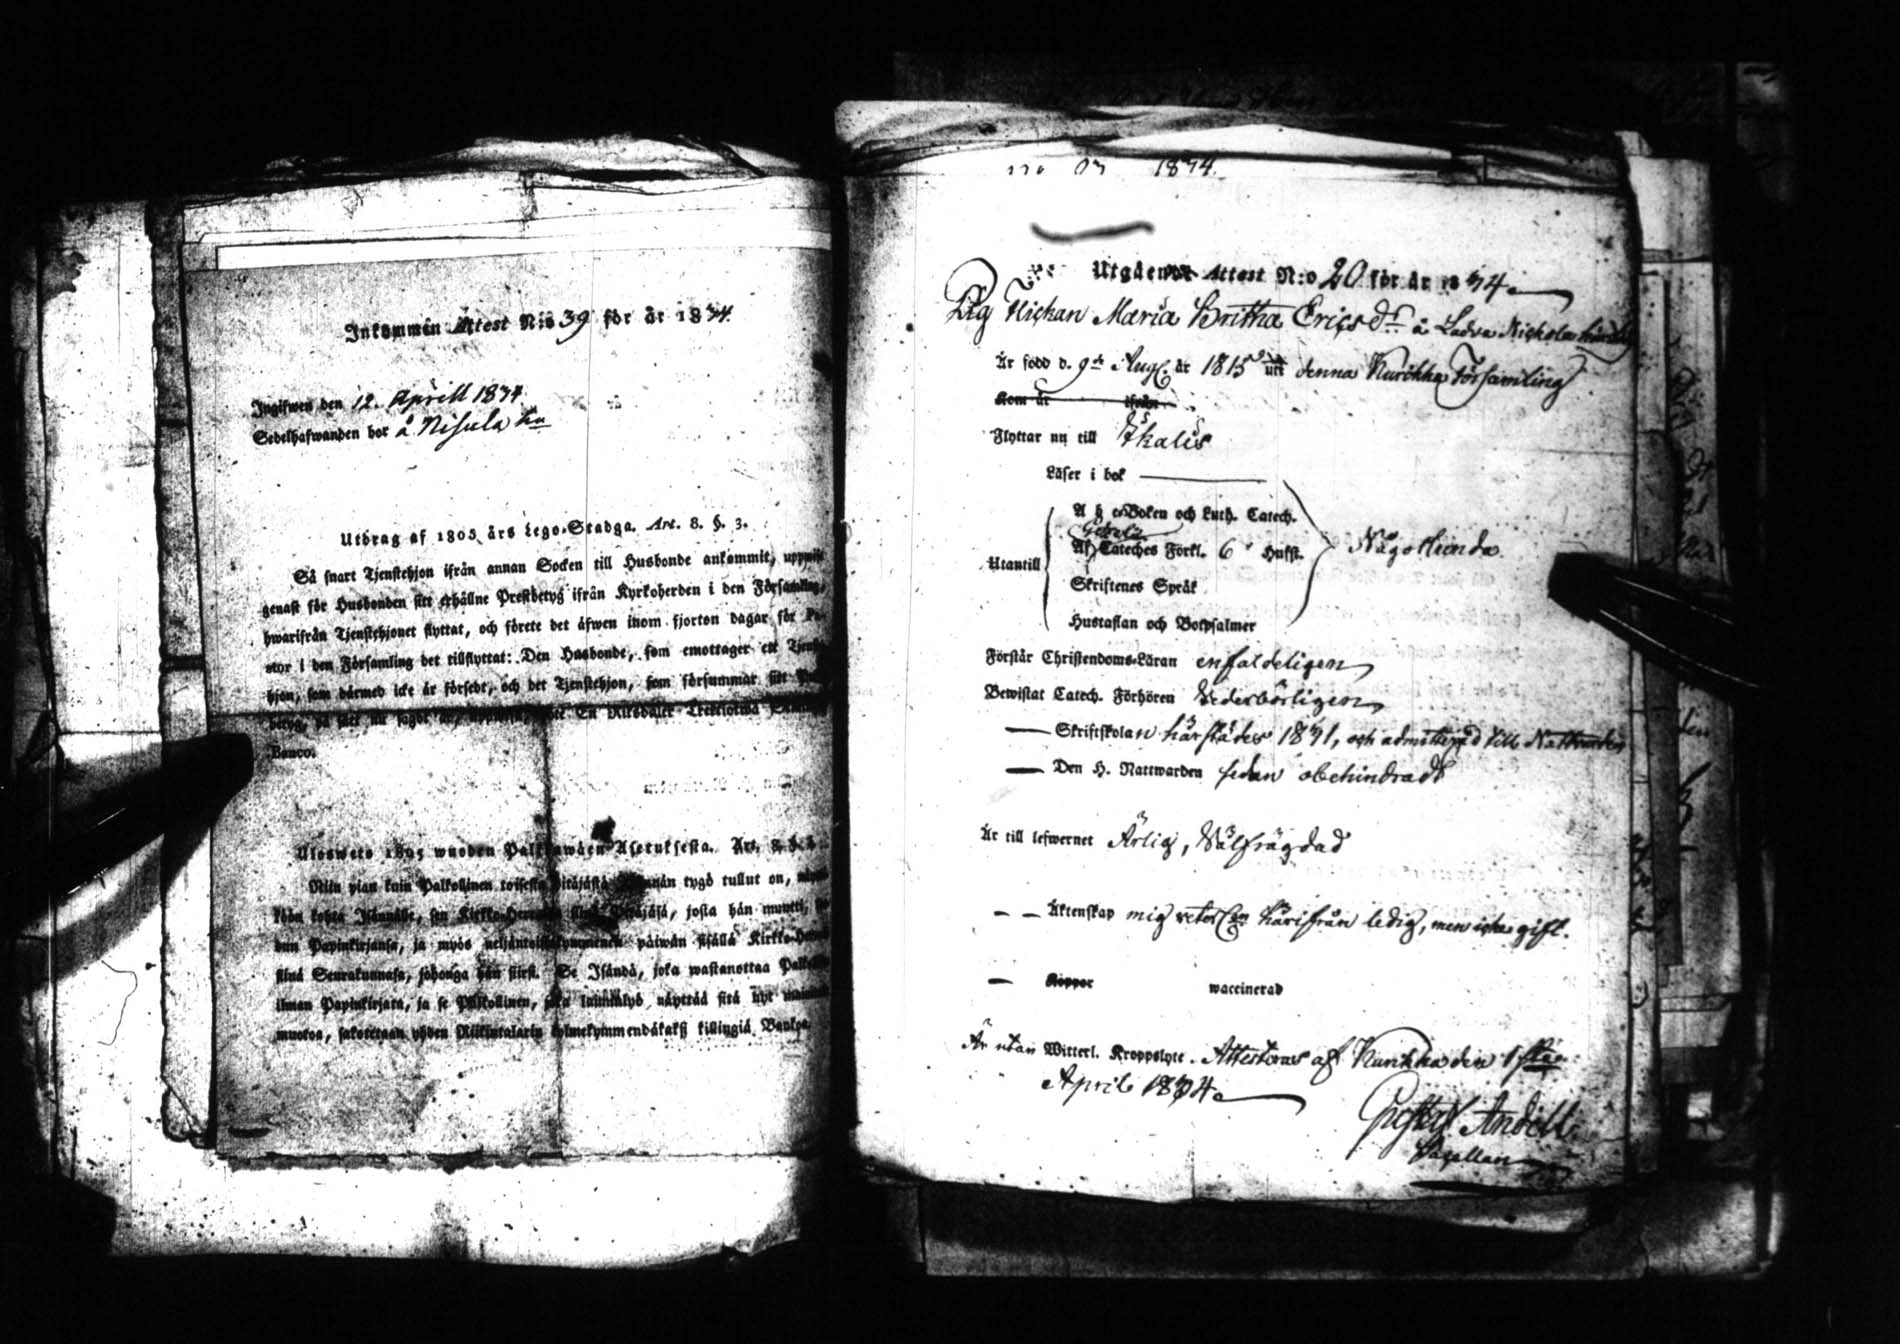 Inkommen Attest N:o 39 för år 1834.
Ingifwen den 12. Aprill 1834.
Sedelhafwanden bor å Nisula
Utdrag af 1805 års Lego-Stadga. Art. 8. §. 3.
Så snart Tjenstehjon ifrån annan Socken till Husbonde ankommit,
genast för Husbonden sitt erhållne Prestbetyg ifrån Kyrkoherden i den Församling,
hwarifrån Tjenstehjonet flyttat, och förete det äfwen inom fjorton dagar för
stor i den Församling det tillflyttat: Den Husbonde, som emottager ett
hjon, som därmed icke är försedt, och det Tjenstehjon, som försummar sitt
betyg, på sätt nu sagdt är, En Riksdaler
Banco.
Ulosweto 1805 wuoden Palkkawäen Asetuksesta. Art. 8.
Niin pian kuin Palkollinen toisesta Pitäjästä tygö tullut on,
kohta Isännälle, sen Kirkko-Herralta siinä Pitäjäsä, josta hän muutti,
dun Papinkirjansa, ja myös neljäntoistakymmenen päiwän sisällä
siinä Seurakunnasa, johonga hän siirsi. Se Isändä, joka wastanottaa
ilman Papinkirjata, ja se Palkollinen, näyttää sitä nyt
muotoa, sakotetaan yhden Riikintalarin kolmekymmendäkaksi killingiä Bankos.
1834.
Utgående Attest N:o 20 för år 1834
Pig Flickan Maria Britha Ericsdr å Ladva
Är född d. 9de Aug. år 1815 uti denna Kurikka Församling
Kom år ifrån
Flyttar nu till Ikalis
Läser i bok
A b c-Boken och Luth. Catech.
Utantill Af Cateches Förkl. 6 Hufst. Någorlunda
Skriftenes Språk
Hustaflan och Botpsalmer
Förstår Christendoms-Läran enfaldeligen
Bewistat Catech. Förhören Vederbörligen
— Skriftskolan härstädes 1831, och admitterad till Nattvarden
— Den H. Nattwarden sedan obehindradt
Är till lefwernet Ärlig, Välfrägdad
— — Äktenskap mig härifrån ledig, men icke gift.
— Koppor waccinerad
Är utan Witterl. Kroppslyte. Attesteras af Kurikka den 1sta
April 1834
Andell.
Capellan